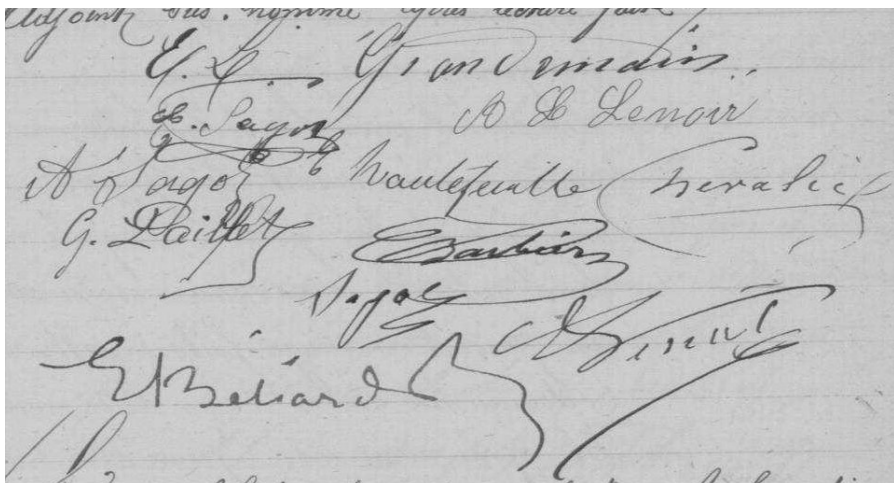 Adjoint sus-nommé après lecture faite
E. L. Grandemain
E. Sagot A L Lenoir
A Sagot E Hautefeuille Chevalier
G. Paillet E Barbier
Sagot
E Béliard